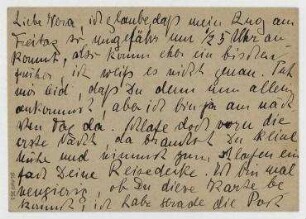 Liebe Vera, ich glaube daß mein Zug am
Freitag so ungefähr um ½ 5 Uhr an
kommt, aber komm eher ein bischen
früher, ich weiß es nicht genau. Tut
mir leid, daß Du dann nun allein
ankommst, aber ich bin ja am näch
sten Tag da. Schlafe doch vorn die
erste Nacht, da brauchst Du keine
Mühe und nimmst zum Schlafen ein
fach Deine Reisedecke. Ich bin mal
neugierig, ob Du diese Karte be
kommst; ich habe grade die Post